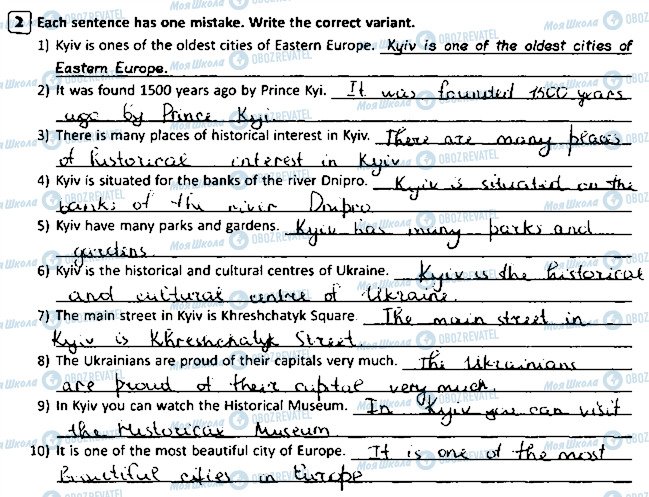 2 Each sentence has one mistake. Write the correct variant.
1) Kyiv is ones of the oldest cities of Eastern Europe. Kyiv is one of the oldest cities of
Eastern Europe.
2) It was found 1500 years ago by Prince Kyi. It was founded 1500 years
ago by Prince Kyi.
3) There is many places of historical interest in Kyiv. There are many places
of historical interest in Kyiv
4) Kyiv is situated for the banks of the river Dnipro. Kyiv is situated on the
banks of the river Dnipro
5) Kyiv have many parks and gardens. Kyiv has many parks and
gardens.
6) Kyiv is the historical and cultural centres of Ukraine. Kyiv is the historical
and cultural centre of Ukraine.
7) The main street in Kyiv is Khreshchatyk Square. The main street in
Kyiv is Khreshchatyk Street.
8) The Ukrainians are proud of their capitals very much. The Ukrainians
are proud of their capital very much.
9) In Kyiv you can watch the Historical Museum. In Kyiv you can visit
the Historical Museum
10) It is one of the most beautiful city of Europe. It is one of the most
beautiful cities in Europe